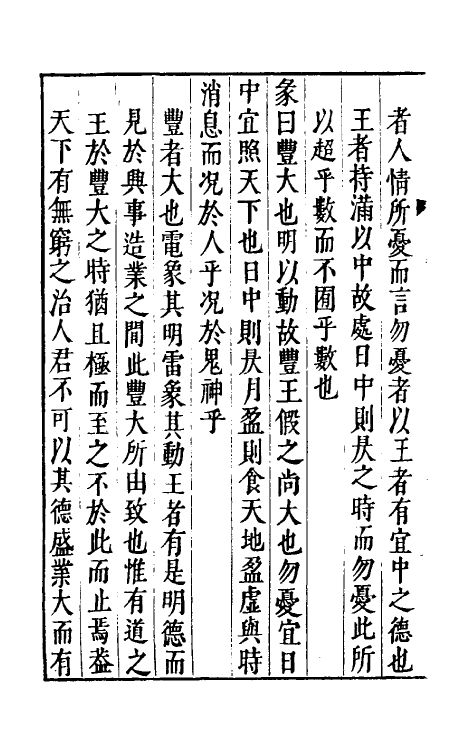 者人情所憂而言勿憂者以王者有宜中之德也
王者持滿以中故處日中則昃之時而勿憂此所
以超乎數而不囿乎數也
彖曰豐大也明以動故豐王假之尚大也勿憂宜日
中宜照天下也日中則昃月盈則食天地盈虛與時
消息而况於人乎况於鬼神乎
豐者大也電象其明雷象其動王者有是明德而
見於興事造業之間此豐大所由致也惟有道之
王於豐大之時猶且極而至之不於此而止焉葢
天下有無窮之治人君不可以其德盛業大而有